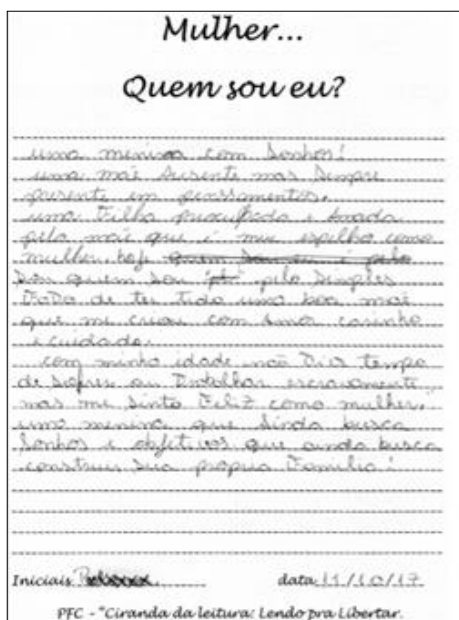 Mulher...
Quem sou eu?
uma menina com sonhos!
uma mãe Ausente mas sempre
presente em pensamentos.
uma Filha preocupada e Amada
pela mãe que é meu espelho como
mulher, hoje quem sou eu é pelo
Sou quem sou pelo simples
FaTo de ter tido uma boa mãe
que me criou com Amor carinho
e cuidado.
com minha idade não Tive tempo
de sofrer ou Trabalhar escravamente,
mas me sinto Feliz como mulher.
uma menina que Ainda busca
sonhos e objetivos que ainda busca
construir sua própria Família!
Iniciais
data 11/10/17
PFC - "Ciranda da leitura: Lendo pra Libertar.